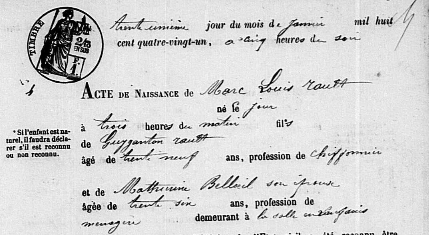 trente unième jour du mois de janvier mil huit
cent quatre-vingt-un, à cinq heures du soir
TIMBRE
ACTE DE NAISSANCE de Marc Louis rault
né le jour
à trois heures du matin fils
* Si l'enfant est naturel, il faudra déclarer s'il est reconnu ou non reconnu.
de rault
âgé de trente neuf ans, profession de chiffonnier
et de Mathurine Bellail son épouse
âgée de trente six ans, profession de
menagère demeurant à la salle